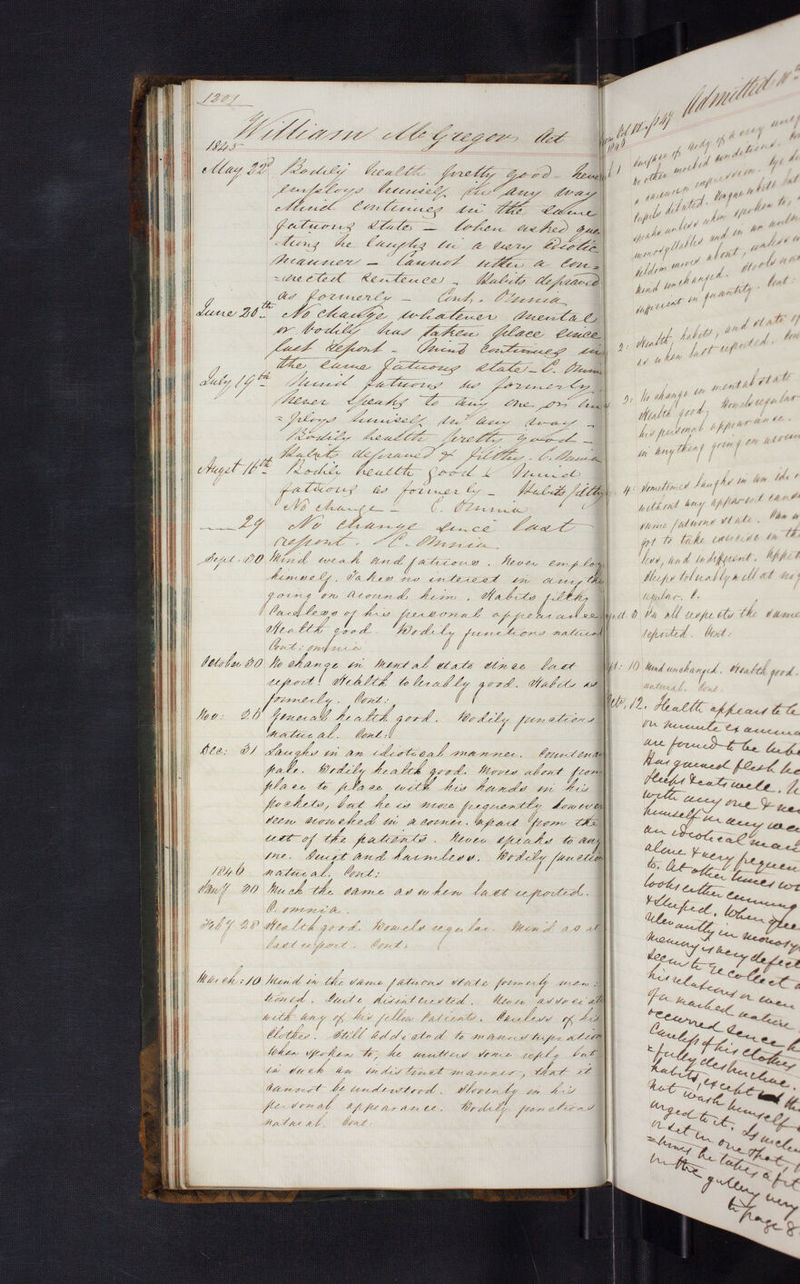 1201
William McGregor Aet
1845
May 22d Bodily health pretty good - never
employs himself in any way
Mind continues in the same
fatuous state - When asked ques
tions he laughs in a very idiotic
manner - Cannot utter a con=
=nected sentence - Habits depraved
as formerly - Cont. Omnia
June 20th No change whatever mental
or bodily has taken place since
last report - Mind continues in
the same fatuous state - C. Omnia
July 19th Mind fatuous as formerly
never speaks to any one, or em
=ploys himself in any way -
Bodily health pretty good -
Habits depraved & filthy. C. Omnia
Augst 16th Bodily health good & Mind
fatuous as formerly - Habits filthy
No change - C. Omnia
29 No change since last
report. C. Omnia
Sept. 30 Mind weak and fatuous. Never employ
himself. Takes no interest in any th
going on around him. Habits filthy
Careless of his personal appearance
Health good. Bodily functions natural
Cont: omnia
October 30 No change in mental state since last
report. Health tolerably good. Habits as
formerly. Cont:
Nov: 26 General health good. Bodily functions
natural. Cont:
Dec: 31 Laughs in an idiotical manner. Countenan
pale. Bodily health good. Moves about from
place to place with his hands in his
pockets, but he is more frequently however
seen crouched in a corner, apart from the
rest of the patients. Never speaks to any
one. Quiet and harmless. Bodily functio
1846 natural. Cont:
Jany 30 Much the same as when last reported.
C. omnia.
Feby 28 Health good. Bowels regular. Mind as at
last report. Cont.
March: 10 Mind in the same fatuous state formerly men:
tioned. Quite disinterested. Never associat
with any of his fellow Patients. Careless of his
Clothes. Still addicted to masturbation
When spoken to, he mutters some reply but
in such an indistinct manner, that it
cannot be understood. Slovenly in his
personal appearance. Bodily functions
natural. Cont:
Admitted
Vague
speaks unless when spoken to,
monosyllables and in an
seldom moves about, unless
mind unchanged.
sufficient in quantity. Cont:
2: Health, habits, and state of
as when last reported.
2: No change in mental state
Health good, Bowels regular
his personal appearance.
in anything going on around
4: Sometimes laughs in an idio
without any apparent cause
same fatuous state. Can
got to take exercise in th
less, and indifferent. Appet
Sleeps tolerably well at nig
regular. C.
In all respects the same
reported. Cont:
10 Mind unchanged. Health good.
natural. Cont.
Octr. 12. Health appears to be
on minute examina
are found to be
Has gained flesh
Sleeps & eats well.
with any one & nev
himself in any way
an idiotical man
alone & very frequen
to. At other times
looks either cunning
& Stupid. When
in monosy
memory is very defect
recollect
his relations or
of a marked nature
occurred since
Careless of his clothes
=fully destructive.
habits, except
not wash himself
urged to it. Is
or sit in one spot,
=times he takes a fit
in the gallery very
to page 8